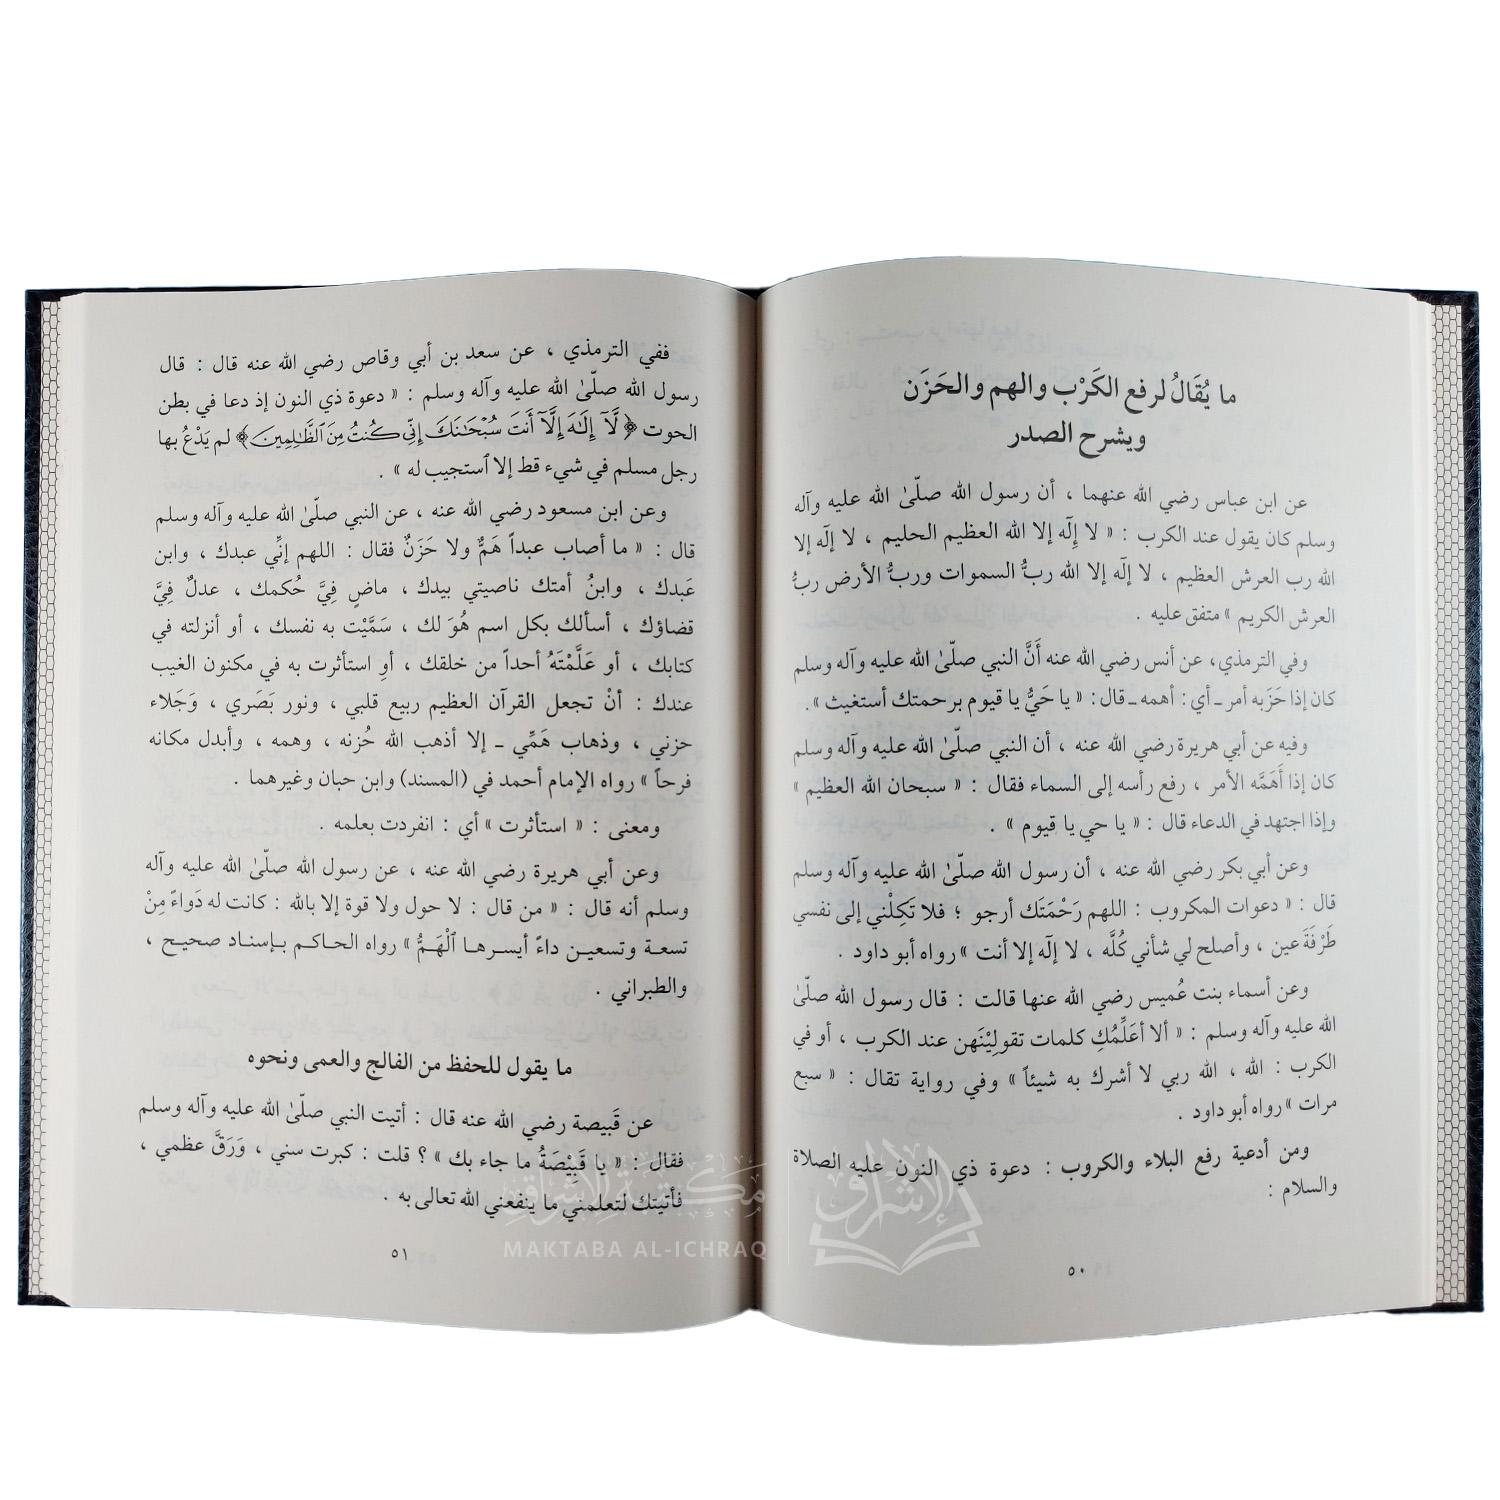 ما يُقَالُ لرفع الكَرْب والهم والحَزَن
ويشرح الصدر
عن ابن عباس رضي الله عنهما ، أن رسول الله صلّىٰ الله عليه وآله
وسلم كان يقول عند الكرب : « لا إلٰه إلا الله العظيم الحليم ، لا إلٰه إلا
الله رب العرش العظيم ، لا إلٰه إلا الله ربُّ السموات وربُّ الأرض ربُّ
العرش الكريم » متفق عليه .
وفي الترمذي، عن أنس رضي الله عنه أَنَّ النبي صلّىٰ الله عليه وآله وسلم
كان إذا حَزَبه أمر ـ أي : أهمه ـ قال : « يا حَيُّ يا قيوم برحمتك أستغيث » .
وفيه عن أبي هريرة رضي الله عنه ، أن النبي صلّىٰ الله عليه وآله وسلم
كان إذا أَهَمَّه الأمر ، رفع رأسه إلى السماء فقال : « سبحان الله العظيم »
وإذا اجتهد في الدعاء قال : « يا حي يا قيوم » .
وعن أبي بكر رضي الله عنه ، أن رسول الله صلّىٰ الله عليه وآله وسلم
قال : « دعوات المكروب : اللهم رَحْمَتَك أرجو ؛ فلا تَكِلْني إلى نفسي
طَرْفَةَ عين ، وأصلح لي شأني كُلَّه ، لا إلٰه إلا أنت » رواه أبو داود .
وعن أسماء بنت عُميس رضي الله عنها قالت : قال رسول الله صلّىٰ
الله عليه وآله وسلم : « ألا أعَلِّمُكِ كلمات تقولِيْنَهن عند الكرب ، أو في
الكرب : الله ، الله ربي لا أشرك به شيئاً » وفي رواية تقال : « سبع
مرات » رواه أبو داود .
ومن أدعية رفع البلاء والكروب : دعوة ذي النون عليه الصلاة
والسلام :
٥٠
ففي الترمذي ، عن سعد بن أبي وقاص رضي الله عنه قال : قال
رسول الله صلّىٰ الله عليه وآله وسلم : « دعوة ذي النون إذ دعا في بطن
الحوت ﴿ لَّآ إِلَٰهَ إِلَّآ أَنتَ سُبْحَٰنَكَ إِنِّي كُنتُ مِنَ ٱلظَّٰلِمِينَ ﴾ لم يَدْعُ بها
رجل مسلم في شيء قط إلا ٱستجيب له » .
وعن ابن مسعود رضي الله عنه ، عن النبي صلّىٰ الله عليه وآله وسلم
قال : « ما أصاب عبداً هَمٌّ ولا حَزَنٌ فقال : اللهم إنِّي عبدك ، وابن
عَبدك ، وابنُ أمتك ناصيتي بيدك ، ماضٍ فِيَّ حُكمك ، عدلٌ فِيَّ
قضاؤك ، أسألك بكل اسم هُوَ لك ، سَمَّيْت به نفسك ، أو أنزلته في
كتابك ، أو عَلَّمْتَهُ أحداً من خلقك ، أوِ استأثرت به في مكنون الغيب
عندك : أنْ تجعل القرآن العظيم ربيع قلبي ، ونور بَصَري ، وَجَلاء
حزني ، وذهاب هَمِّي ـ إلا أذهب الله حُزنه ، وهمه ، وأبدل مكانه
فرحاً » رواه الإمام أحمد في (المسند) وابن حبان وغيرهما .
ومعنى : « استأثرت » أي : انفردت بعلمه .
وعن أبي هريرة رضي الله عنه ، عن رسول الله صلّىٰ الله عليه وآله
وسلم أنه قال : « من قال : لا حول ولا قوة إلا بالله : كانت له دَواءً مِنْ
تسعة وتسعين داءً أيسرها ٱلْهَمُّ » رواه الحاكم بإسناد صحيح ،
والطبراني .
ما يقول للحفظ من الفالج والعمى ونحوه
عن قَبيصة رضي الله عنه قال : أتيت النبي صلّىٰ الله عليه وآله وسلم
فقال : « يا قَبِيْصَةُ ما جاء بك » ؟ قلت : كبرت سني ، وَرَقَّ عظمي ،
فأتيتك لتعلمني ما ينفعني الله تعالى به .
٥١
مكتبة الإشراق
MAKTABA AL-ICHRAQ
الإشراق